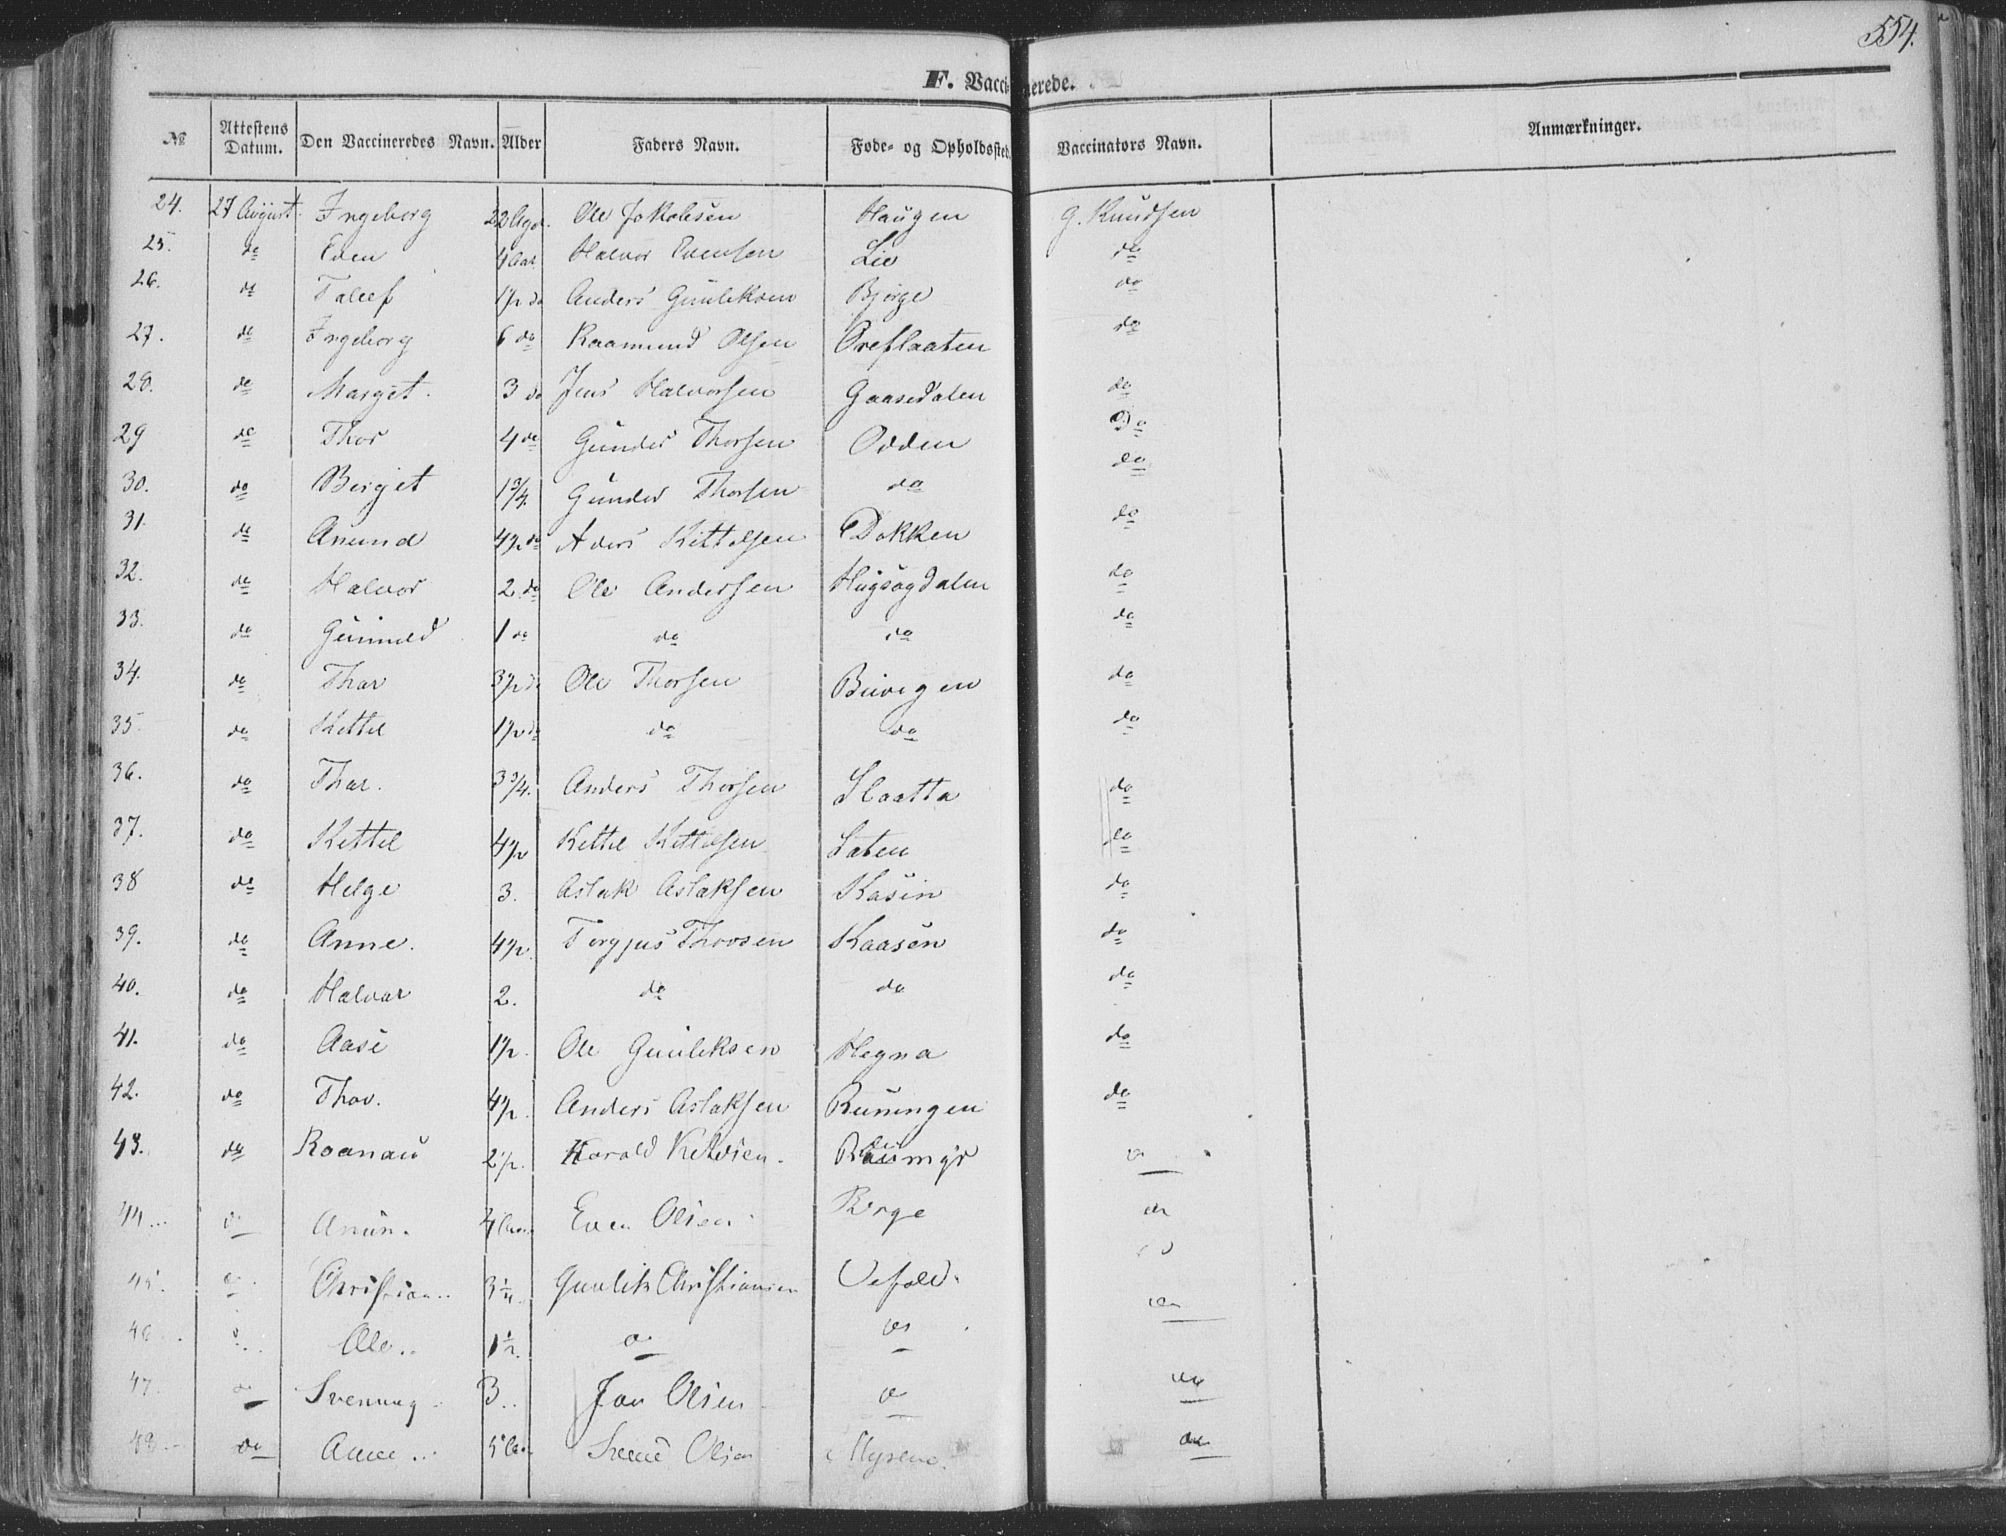 554.
F. Vaccinerede.
№ Attestens Datum. Den Vaccineredes Navn. Alder Faders Navn. Føde- og Opholdssted. Vaccinators Navn. Anmærkninger.
24. 27 August. Ingeborg 22 Uger. Ole Jakobsen Haugen G. Knudsen
25. do Even 4 Aar Halvor Evensen Lie do
26. do Tallef 1½ do Anders Gunleksen Bjørge do
27. do Ingeborg 6 do Raamund Olsen Oreflaaten do
28. do Marget. 3 do Jens Halvorsen Gaasedalen do
29 do Thor 4 do Gunder Thorsen Odden Do
30. do Berget 1¾. Gunder Thorsen do do
31. do Anund 4½ do Aders Kittelsen Dokken do
32. do Halvor 2 do Ole Andersen Hugsogdalen do
33. do Gunnild 1 do do do do
34. do Thor 3½ do Ole Thorsen Buvegen do
35 do Kettel 1½ do do do do
36. do Thor. 3¾. Anders Thorsen Slaatta do
37. do Kettel 4½ Kettel Kittelsen Laten do
38 do Helge 3. Aslak Aslaksen Kasin do
39. do Anne. 4½. Tergjus Thorsen Kaasen do
40. do Halvor 2. do do do
41. do Aase 1½. Ole Gunleksen Hegna do
42. do Thov. 4½. Anders Aslaksen Runingen do
43. do Roanau 2½. Harald Ketelsen. do
44... do Anun. 4 Aar Even Olsen Berge do
45. do Christian.. 3¼. Gunlik Christiansen do
46.. do Ole.. 1½. do do do
47. do Svenung 3.. Jon Olsen do do
48.. do Anne.. 5 Aar Olsen Myrene. do